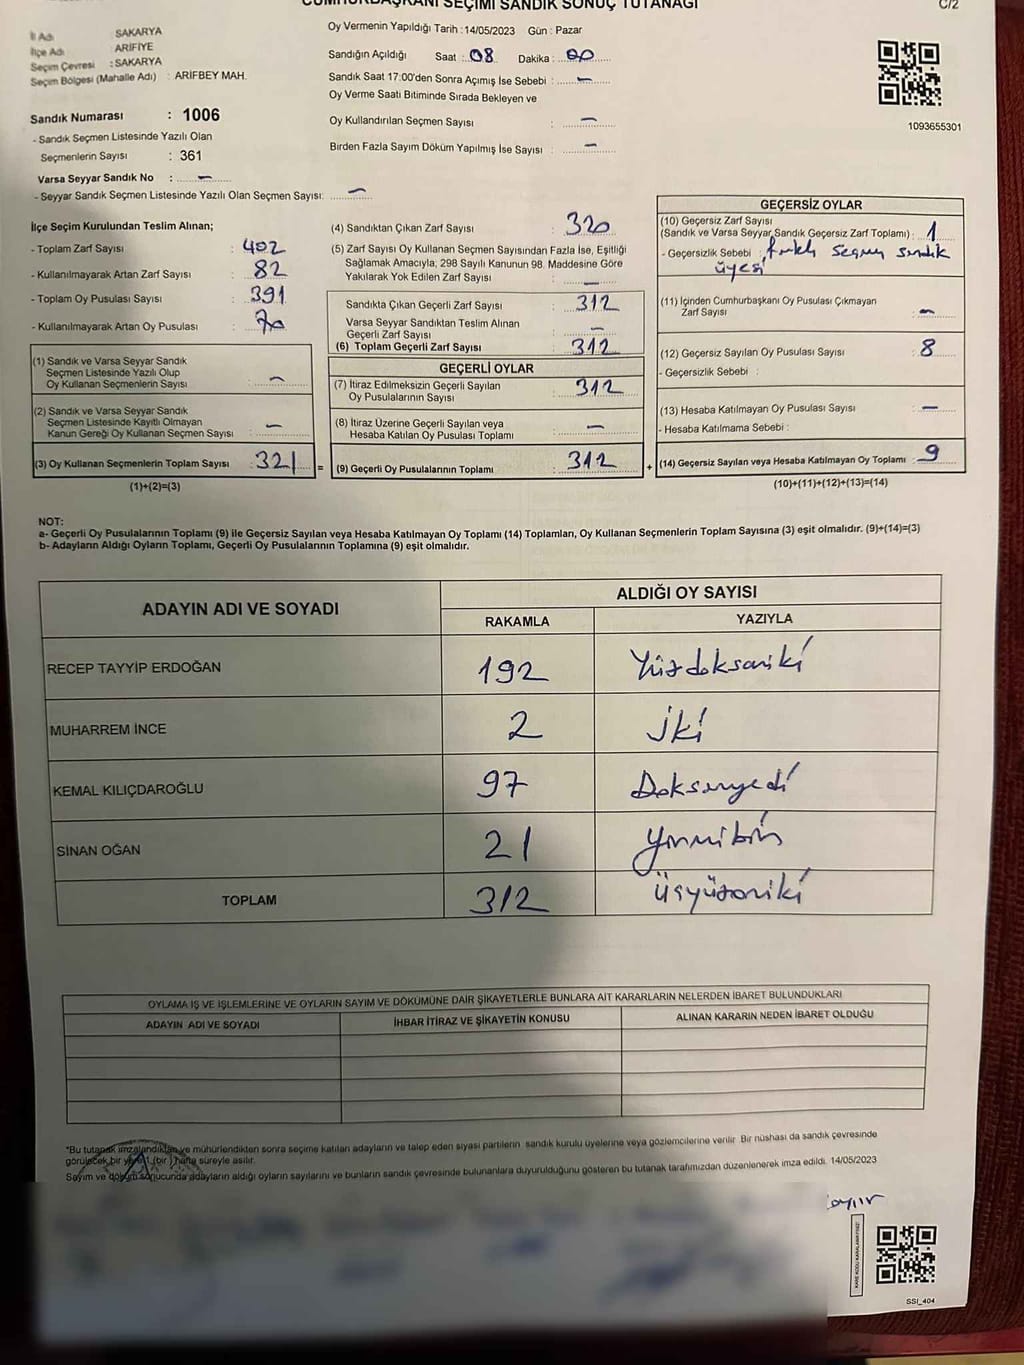 CUMHURBAŞKANI SEÇİMİ SANDIK SONUÇ TUTANAĞI
C/2
İl Adı SAKARYA
İlçe Adı ARİFİYE
Seçim Çevresi : SAKARYA
Seçim Bölgesi (Mahalle Adı) : ARİFBEY MAH.
Oy Vermenin Yapıldığı Tarih : 14/05/2023 Gün : Pazar
Sandığın Açıldığı Saat : 08 Dakika : 00
Sandık Saat 17:00'den Sonra Açımış İse Sebebi : –
Oy Verme Saati Bitiminde Sırada Bekleyen ve
Oy Kullandırılan Seçmen Sayısı : –
Birden Fazla Sayım Döküm Yapılmış İse Sayısı : –
1093655301
Sandık Numarası : 1006
- Sandık Seçmen Listesinde Yazılı Olan
Seçmenlerin Sayısı : 361
Varsa Seyyar Sandık No : –
- Seyyar Sandık Seçmen Listesinde Yazılı Olan Seçmen Sayısı: –
İlçe Seçim Kurulundan Teslim Alınan;
- Toplam Zarf Sayısı : 402
- Kullanılmayarak Artan Zarf Sayısı : 82
- Toplam Oy Pusulası Sayısı : 391
- Kullanılmayarak Artan Oy Pusulası : 70
(1) Sandık ve Varsa Seyyar Sandık
Seçmen Listesinde Yazılı Olup
Oy Kullanan Seçmenlerin Sayısı : –
(2) Sandık ve Varsa Seyyar Sandık
Seçmen Listesinde Kayıtlı Olmayan
Kanun Gereği Oy Kullanan Seçmen Sayısı : –
(3) Oy Kullanan Seçmenlerin Toplam Sayısı : 321
(1)+(2)=(3)
(4) Sandıktan Çıkan Zarf Sayısı : 320
(5) Zarf Sayısı Oy Kullanan Seçmen Sayısından Fazla İse, Eşitliği
Sağlamak Amacıyla, 298 Sayılı Kanunun 98. Maddesine Göre
Yakılarak Yok Edilen Zarf Sayısı : –
Sandıkta Çıkan Geçerli Zarf Sayısı : 312
Varsa Seyyar Sandıktan Teslim Alınan
Geçerli Zarf Sayısı : –
(6) Toplam Geçerli Zarf Sayısı : 312
GEÇERLİ OYLAR
(7) İtiraz Edilmeksizin Geçerli Sayılan
Oy Pusulalarının Sayısı : 312
(8) İtiraz Üzerine Geçerli Sayılan veya
Hesaba Katılan Oy Pusulası Toplamı : –
= (9) Geçerli Oy Pusulalarının Toplamı : 312 +
GEÇERSİZ OYLAR
(10) Geçersiz Zarf Sayısı
(Sandık ve Varsa Seyyar Sandık Geçersiz Zarf Toplamı) : 1
- Geçersizlik Sebebi : farklı seçim sandık
üyesi
(11) İçinden Cumhurbaşkanı Oy Pusulası Çıkmayan
Zarf Sayısı : –
(12) Geçersiz Sayılan Oy Pusulası Sayısı : 8
- Geçersizlik Sebebi :
(13) Hesaba Katılmayan Oy Pusulası Sayısı : –
- Hesaba Katılmama Sebebi :
(14) Geçersiz Sayılan veya Hesaba Katılmayan Oy Toplamı : 9
(10)+(11)+(12)+(13)=(14)
NOT:
a- Geçerli Oy Pusulalarının Toplamı (9) ile Geçersiz Sayılan veya Hesaba Katılmayan Oy Toplamı (14) Toplamları, Oy Kullanan Seçmenlerin Toplam Sayısına (3) eşit olmalıdır. (9)+(14)=(3)
b- Adayların Aldığı Oyların Toplamı, Geçerli Oy Pusulalarının Toplamına (9) eşit olmalıdır.
ADAYIN ADI VE SOYADI ALDIĞI OY SAYISI
RAKAMLA YAZIYLA
RECEP TAYYİP ERDOĞAN 192 Yüzdoksaniki
MUHARREM İNCE 2 İki
KEMAL KILIÇDAROĞLU 97 Doksanyedi
SİNAN OĞAN 21 Yirmibir
TOPLAM 312 Üçyüzoniki
OYLAMA İŞ VE İŞLEMLERİNE VE OYLARIN SAYIM VE DÖKÜMÜNE DAİR ŞİKAYETLERLE BUNLARA AİT KARARLARIN NELERDEN İBARET BULUNDUKLARI
ADAYIN ADI VE SOYADI İHBAR İTİRAZ VE ŞİKAYETİN KONUSU ALINAN KARARIN NEDEN İBARET OLDUĞU
*Bu tutanak imzalandıktan ve mühürlendikten sonra seçime katılan adayların ve talep eden siyasi partilerin sandık kurulu üyelerine veya gözlemcilerine verilir. Bir nüshası da sandık çevresinde
görülecek bir yere 1 (bir) hafta süreyle asılır.
Sayım ve döküm sonucunda adayların aldığı oyların sayılarını ve bunların sandık çevresinde bulunanlara duyurulduğunu gösteren bu tutanak tarafımızdan düzenlenerek imza edildi. 14/05/2023
KARE KODU KARALAMAYINIZ!
SSI_404